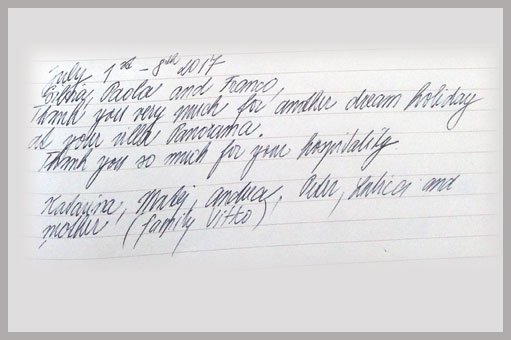 July 1st - 8th 2017
Silvia, Paola and Franco,
Thank you very much for another dream holiday
at your villa Panorama.
Thank you so much for your hospitality
Katarina, Matej, Andrea, Peter, and
mother (family Vitko)